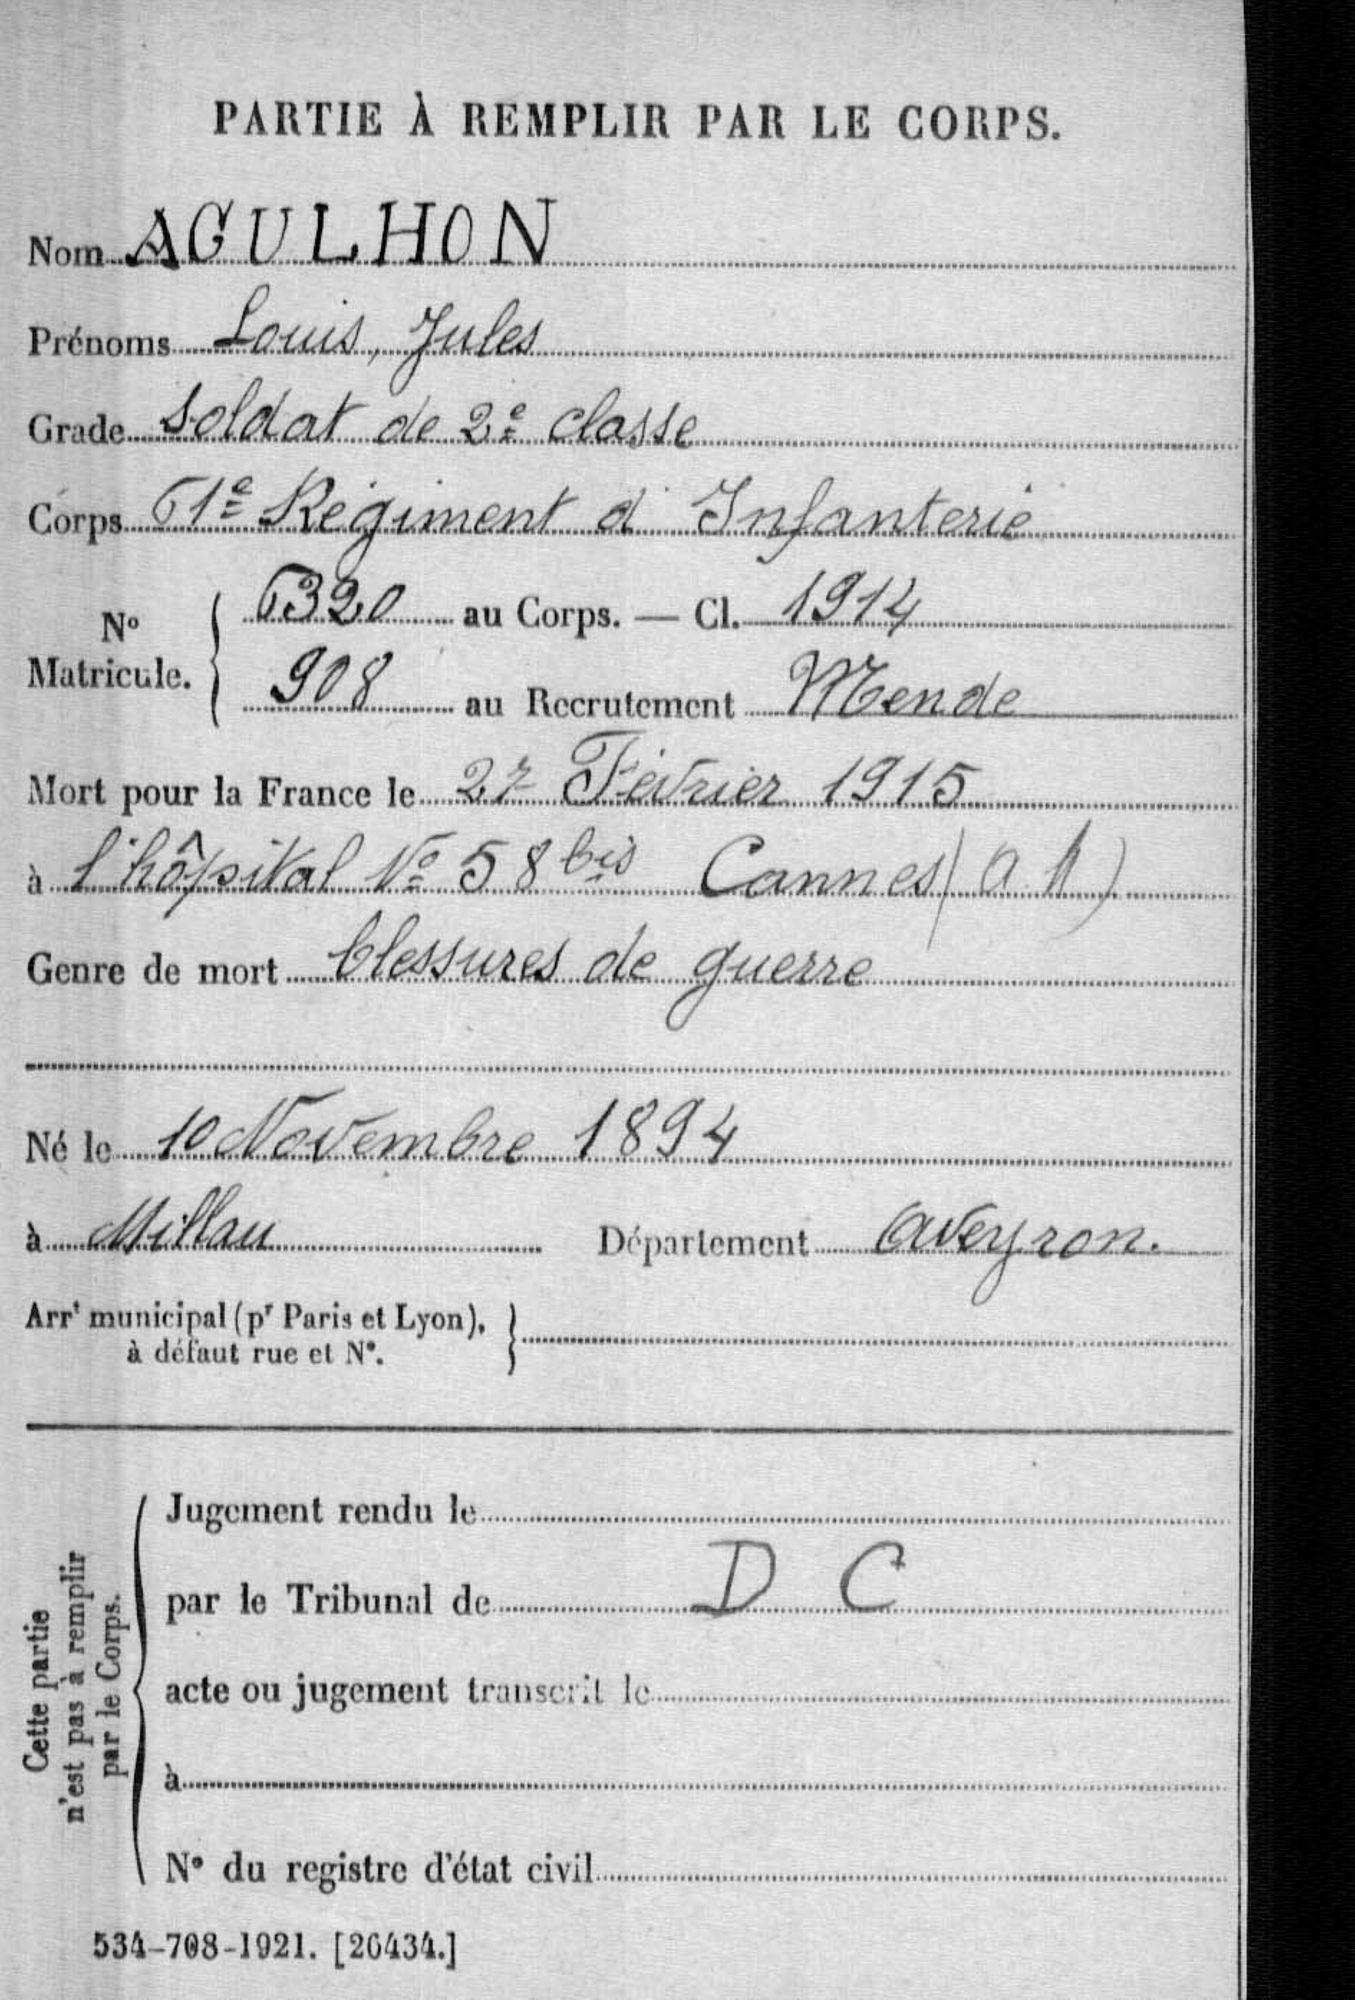 PARTIE À REMPLIR PAR LE CORPS.
Nom AGULHON
Prénoms Louis, Jules
Grade Soldat de 2e classe
Corps 61e Régiment d'Infanterie
No Matricule. { 6320 au Corps. — Cl. 1914
908 au Recrutement Mende
Mort pour la France le 27 Février 1915
à l'hôpital No 58 bis Cannes (A M)
Genre de mort blessures de guerre
Né le 10 Novembre 1894
à Millau Département Aveyron.
Arrt municipal (pr Paris et Lyon), }
à défaut rue et N°.
Cette partie
n'est pas à remplir
par le Corps.
Jugement rendu le
par le Tribunal de D C
acte ou jugement transcrit le
à
N° du registre d'état civil
534-708-1921. [26434.]